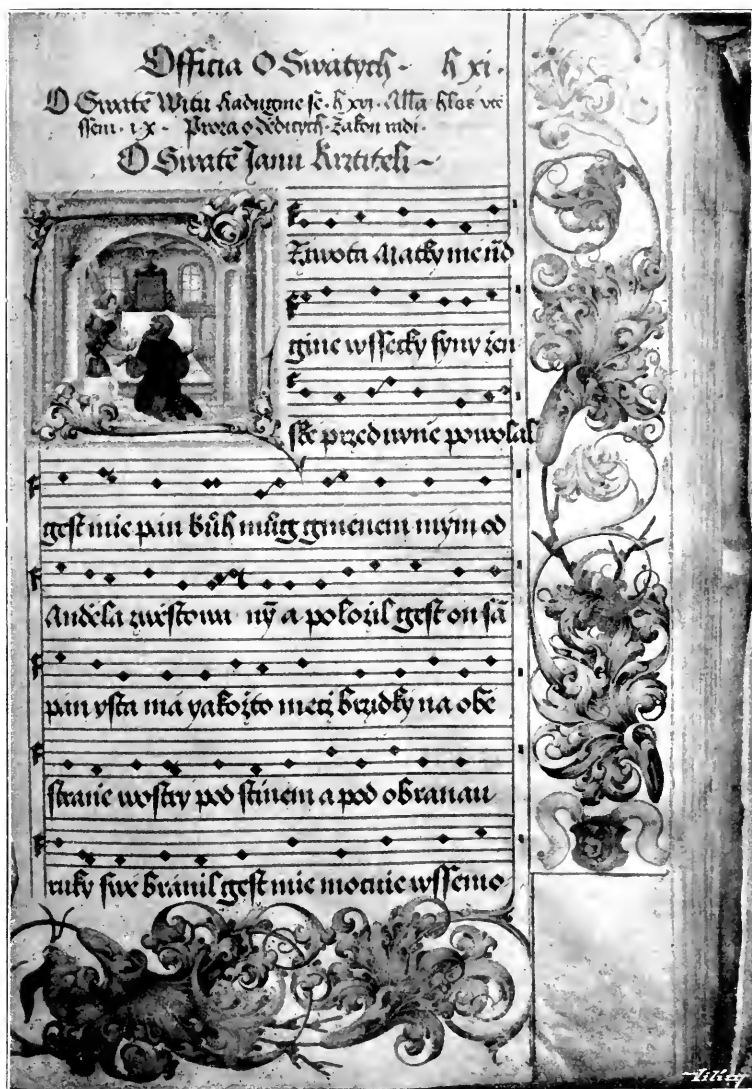 Officia O Swatych · h xi ·
O Swatē Witu · h xvi · Alla hlas
· i x · Proza o dědicych · Zakon
O Swatē Janu Krztiteli ~
Ziwota Matky me
gine wssecky syny žen
ske przediwnie powolal
gest mie pan bůh můg gmenem mým od
Anděla zwěstowa ný a položil gest on sā
pan vsta má yakožto mecz brzidky na obě
stranie wostry pod stinem a pod obranau
ruky swe bránil gest mie mocnie wssemo